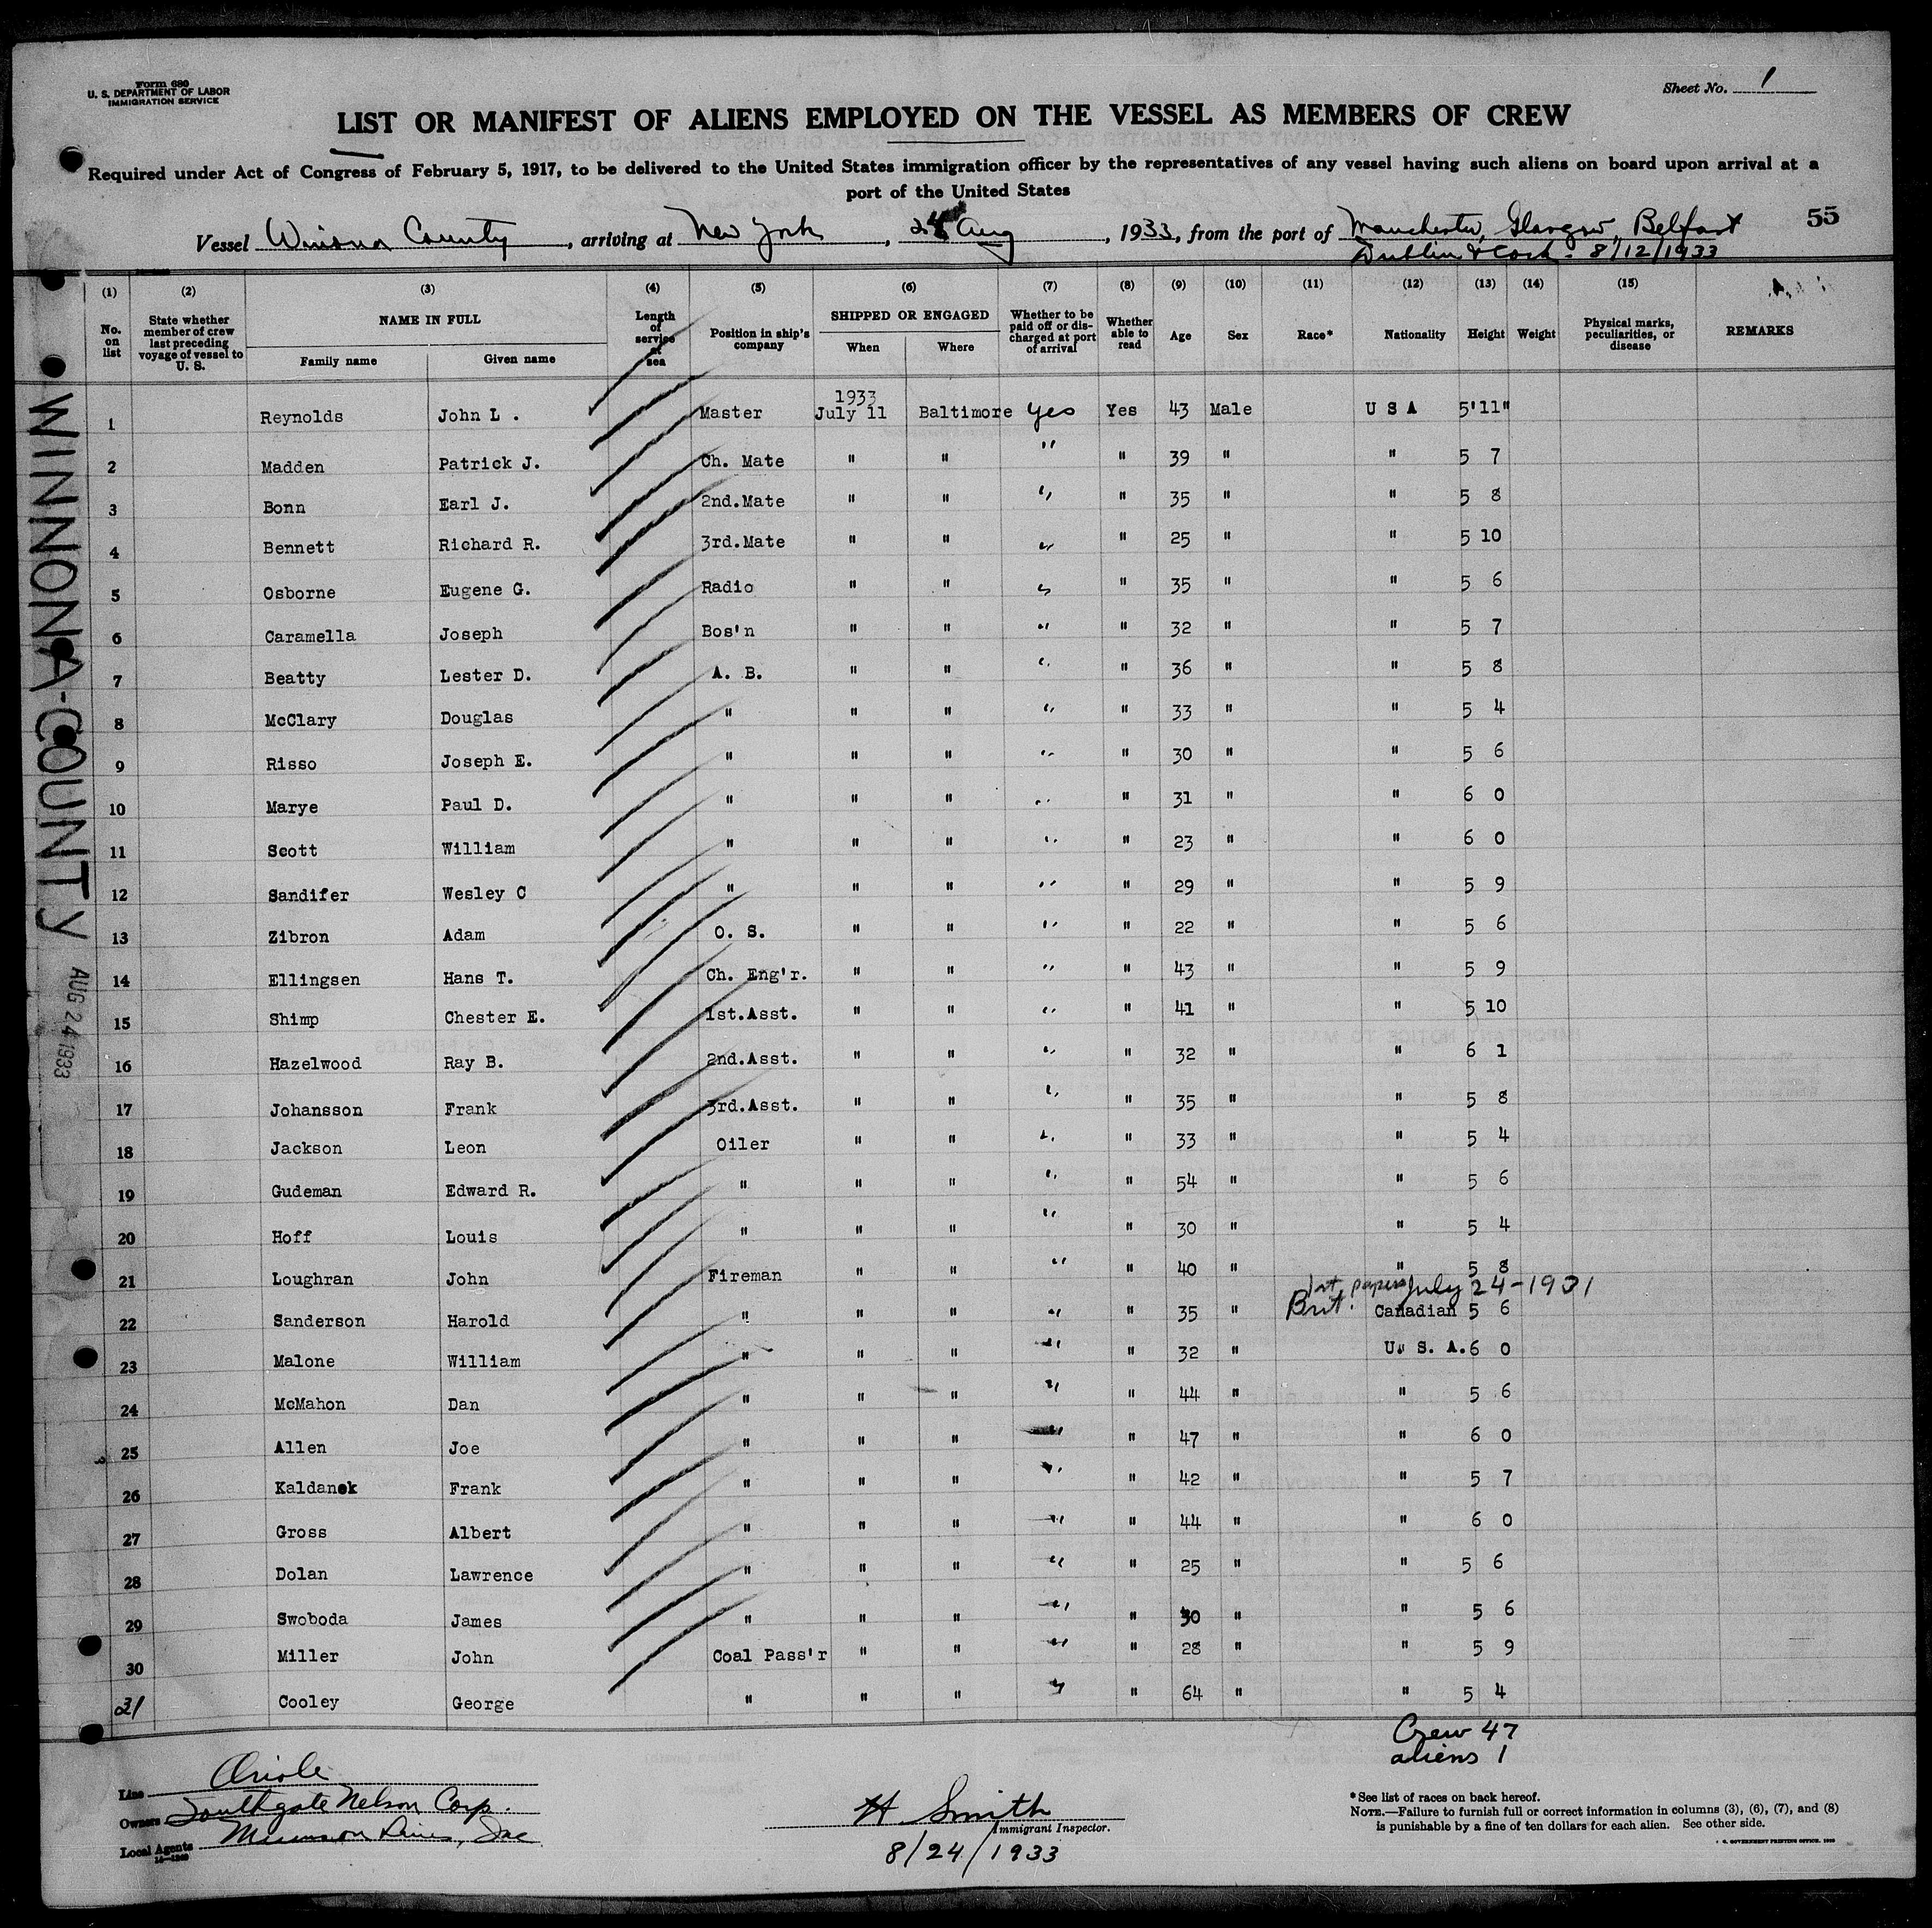 Form 680
U. S. DEPARTMENT OF LABOR
IMMIGRATION SERVICE
Sheet No. 1
LIST OR MANIFEST OF ALIENS EMPLOYED ON THE VESSEL AS MEMBERS OF CREW
Required under Act of Congress of February 5, 1917, to be delivered to the United States immigration officer by the representatives of any vessel having such aliens on board upon arrival at a
port of the United States
55
Vessel Winona County, arriving at New York, 24 Aug, 1933, from the port of Manchester, Glasgow, Belfast
Dublin & Cork. 8/12/1933
(1) (2) (3) (4) (5) (6) (7) (8) (9) (10) (11) (12) (13) (14) (15)
No. on list State whether member of crew last preceding voyage of vessel to U. S. NAME IN FULL Length of service at sea Position in ship's company SHIPPED OR ENGAGED Whether to be paid off or discharged at port of arrival Whether able to read Age Sex Race* Nationality Height Weight Physical marks, peculiarities, or disease REMARKS
Family name Given name When Where
1933
1 Reynolds John L . Master July 11 Baltimore yes Yes 43 Male U S A 5'11"
2 Madden Patrick J. Ch. Mate " " " " 39 " " 5 7
3 Bonn Earl J. 2nd.Mate " " " " 35 " " 5 8
4 Bennett Richard R. 3rd.Mate " " " " 25 " " 5 10
5 Osborne Eugene G. Radio " " " " 35 " " 5 6
6 Caramella Joseph Bos'n " " " " 32 " " 5 7
7 Beatty Lester D. A. B. " " " " 36 " " 5 8
8 McClary Douglas " " " " " 33 " " 5 4
9 Risso Joseph E. " " " " " 30 " " 5 6
10 Marye Paul D. " " " " " 31 " " 6 0
11 Scott William " " " " " 23 " " 6 0
12 Sandifer Wesley C " " " " " 29 " " 5 9
13 Zibron Adam O. S. " " " " 22 " " 5 6
14 Ellingsen Hans T. Ch. Eng'r. " " " " 43 " " 5 9
15 Shimp Chester E. 1st.Asst. " " " " 41 " " 5 10
16 Hazelwood Ray B. 2nd.Asst. " " " " 32 " " 6 1
17 Johansson Frank 3rd.Asst. " " " " 35 " " 5 8
18 Jackson Leon Oiler " " " " 33 " " 5 4
19 Gudeman Edward R. " " " " " 54 " " 5 6
20 Hoff Louis " " " " " 30 " " 5 4
21 Loughran John Fireman " " " " 40 " " 5 8
1st papers July 24-1931
22 Sanderson Harold " " " " " 35 " Brit. Canadian 5 6
23 Malone William " " " " " 32 " U. S. A. 6 0
24 McMahon Dan " " " " " 44 " " 5 6
25 Allen Joe " " " " " 47 " " 6 0
26 Kaldanek Frank " " " " " 42 " " 5 7
27 Gross Albert " " " " " 44 " " 6 0
28 Dolan Lawrence " " " " " 25 " " 5 6
29 Swoboda James " " " " " 30 " " 5 6
30 Miller John Coal Pass'r " " " " 28 " " 5 9
31 Cooley George " " " " " 64 " " 5 4
WINNONA-COUNTY AUG 24 1933
Crew 47
aliens 1
Line Oriole
Owners Southgate Nelson Corp.
Local Agents Lines, Inc
H Smith
Immigrant Inspector.
8/24/1933
*See list of races on back hereof.
NOTE.—Failure to furnish full or correct information in columns (3), (6), (7), and (8)
is punishable by a fine of ten dollars for each alien. See other side.
GOVERNMENT PRINTING OFFICE